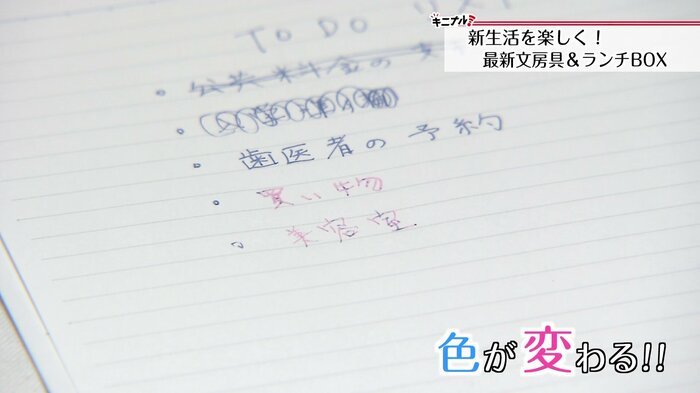 キニナル!
新生活を楽しく!
最新文房具&ランチBOX
TO DO リスト
公共料金の支
歯医者の予約
買い物
美容室
色が変わる!!